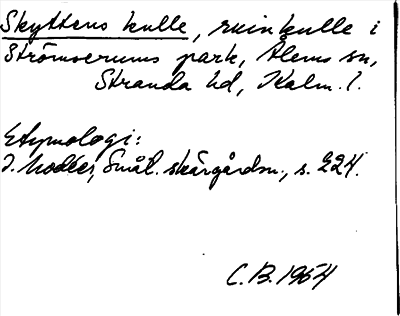 Skyttens kulle, ruinkulle i
Strömserums park, Ålems sn,
Stranda hd, Kalm. l.
Etymologi:
I. Modéer, Smål. skärgårdsn., s. 224.
C.B. 1954